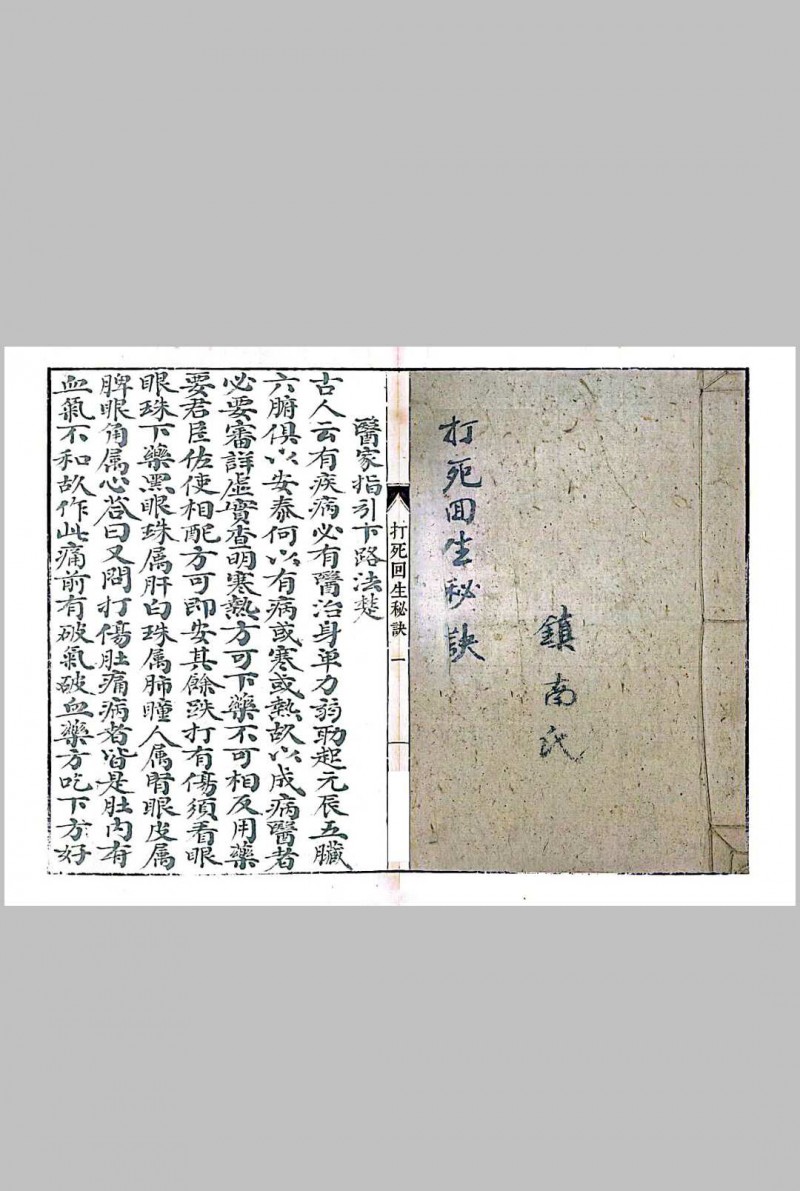 打死回生秘訣
鎮南氏
打死回生秘訣 一
醫家指引下路法楚
古人云有疾病必有醫治身单力弱助起元辰五臟
六腑俱以安泰何以有病或寒或熱故以成病醫者
必要審詳虛實查明寒熱方可下藥不可相反用藥
要君臣佐使相配方可即安其餘跌打有傷須看眼
眼珠下藥黑眼珠属肝白珠属肺瞳人属腎眼皮属
脾眼角属心答曰又問打傷肚痛病者皆是肚内有
血氣不和故作此痛前有破氣破血藥方吃下方好